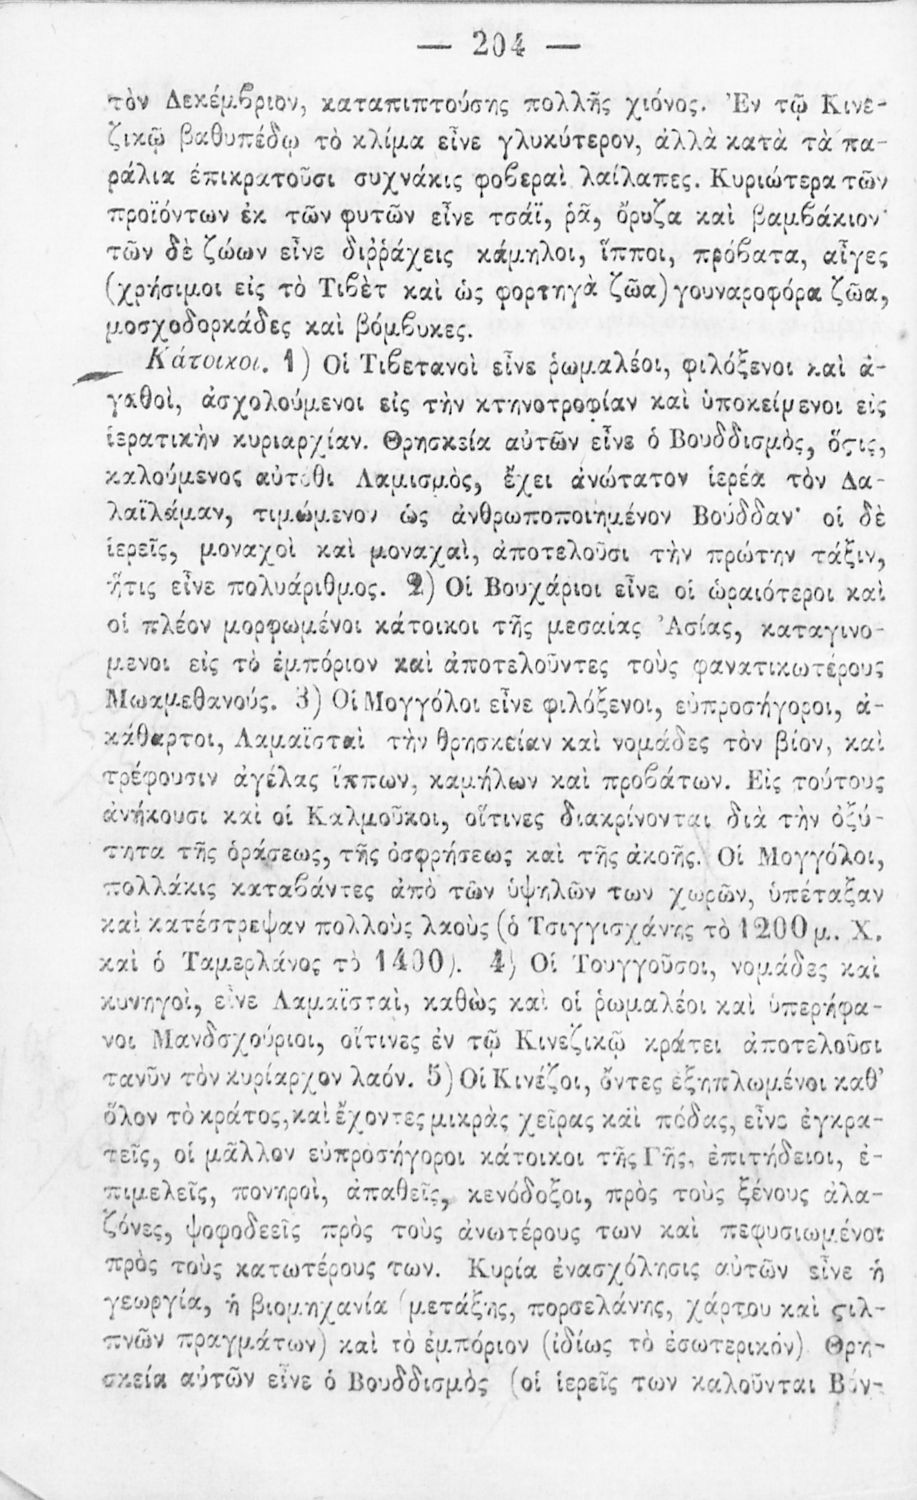 — 204 —
τὸν Δεκέμβριον, καταπιπτούσης πολλῆς χιόνος. Ἐν τῷ Κινε-
ζικῷ βαθυπέδῳ τὸ κλίμα εἶνε γλυκύτερον, ἀλλὰ κατὰ τὰ πα-
ράλια ἐπικρατοῦσι συχνάκις φοβεραὶ λαίλαπες. Κυριώτερα τῶν
προϊόντων ἐκ τῶν φυτῶν εἶνε τσάϊ, ῥᾶ, ὄρυζα καὶ βαμβάκιον·
τῶν δὲ ζώων εἶνε διῤῥάχεις κάμηλοι, ἵπποι, πρόβατα, αἶγες
(χρήσιμοι εἰς τὸ Τιβὲτ καὶ ὡς φορτηγὰ ζῶα) γουναροφόρα ζῶα,
μοσχοδορκάδες καὶ βόμβυκες.
Κάτοικοι. 1) Οἱ Τιβετανοὶ εἶνε ῥωμαλέοι, φιλόξενοι καὶ ἀ-
γαθοὶ, ἀσχολούμενοι εἰς τὴν κτηνοτροφίαν καὶ ὑποκείμενοι εἰς
ἱερατικὴν κυριαρχίαν. Θρησκεία αὐτῶν εἶνε ὁ Βουδδισμὸς, ὅςις,
καλούμενος αὐτόθι Λαμισμὸς, ἔχει ἀνώτατον ἱερέα τὸν Δα-
λαϊλάμαν, τιμώμενον ὡς ἀνθρωποποιημένον Βούδδαν· οἱ δὲ
ἱερεῖς, μοναχοὶ καὶ μοναχαὶ, ἀποτελοῦσι τὴν πρώτην τάξιν,
ἥτις εἶνε πολυάριθμος. 2) Οἱ Βουχάριοι εἶνε οἱ ὡραιότεροι καὶ
οἱ πλέον μορφωμένοι κάτοικοι τῆς μεσαίας Ἀσίας, καταγινο-
μενοι εἰς τὸ ἐμπόριον καὶ ἀποτελοῦντες τοὺς φανατικωτέρους
Μωαμεθανούς. 3) Οἱ Μογγόλοι εἶνε φιλόξενοι, εὐπροσήγοροι, ἀ-
κάθαρτοι, Λαμαϊσταὶ τὴν θρησκείαν καὶ νομάδες τὸν βίον, καὶ
τρέφουσιν ἀγέλας ἵππων, καμήλων καὶ προβάτων. Εἰς τούτους
ἀνήκουσι καὶ οἱ Καλμοῦκοι, οἵτινες διακρίνονται διὰ τὴν ὀξύ-
τητα τῆς ὁράσεως, τῆς ὀσφρήσεως καὶ τῆς ἀκοῆς. Οἱ Μογγόλοι,
πολλάκις καταβάντες ἀπὸ τῶν ὑψηλῶν των χωρῶν, ὑπέταξαν
καὶ κατέστρεψαν πολλοὺς λαοὺς (ὁ Τσιγγισχάνης τὸ 1200 μ. Χ.
καὶ ὁ Ταμερλάνος τὸ 1400). 4) Οἱ Τουγγοῦσοι, νομάδες καὶ
κυνηγοὶ, εἶνε Λαμαϊσταὶ, καθὼς καὶ οἱ ῥωμαλέοι καὶ ὑπερήφα-
νοι Μανδσχούριοι, οἵτινες ἐν τῷ Κινεζικῷ κράτει ἀποτελοῦσι
τανῦν τὸν κυρίαρχον λαόν. 5) Οἱ Κινέζοι, ὄντες ἐξηπλωμένοι καθ’
ὅλον τὸ κράτος, καὶ ἔχοντες μικρὰς χεῖρας καὶ πόδας, εἶνε ἐγκρα-
τεῖς, οἱ μᾶλλον εὐπροσήγοροι κάτοικοι τῆς Γῆς, ἐπιτήδειοι, ἐ-
πιμελεῖς, πονηροὶ, ἀπαθεῖς, κενόδοξοι, πρὸς τοὺς ξένους ἀλα-
ζόνες, ψοφοδεεῖς πρὸς τοὺς ἀνωτέρους των καὶ πεφυσιωμένοι
πρὸς τοὺς κατωτέρους των. Κυρία ἐνασχόλησις αὐτῶν εἶνε ἡ
γεωργία, ἡ βιομηχανία (μετάξης, πορσελάνης, χάρτου καὶ ςιλ-
πνῶν πραγμάτων) καὶ τὸ ἐμπόριον (ἰδίως τὸ ἐσωτερικόν) Θρη-
σκεία αὐτῶν εἶνε ὁ Βουδδισμὸς (οἱ ἱερεῖς των καλοῦνται Βόν-